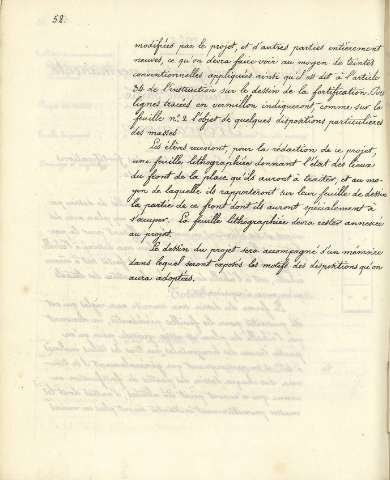 58.
modifiées par le projet, et d'autres parties entièrement
neuves, ce qu'on devra faire voir au moyen de teintes
conventionnelles appliquées ainsi qu'il est dit à l'article
34 de l'instruction sur le dessin de la fortification. Des
lignes tracées en vermillon indiqueront, comme sur la
feuille n.º 2 l'objet de quelques dispositions particulières
des masses
Les élèves recevront, pour la rédaction de ce projet,
une feuille lithographiée donnant l'état des lieux
du front de la place qu'ils auront à traiter et au mo-
yen de laquelle ils rapporteront sur leur feuille de dessin
la partie de ce front dont ils auront spécialement à
s'occuper. La feuille lithographiée devra rester annexée
au projet.
Le dessin du projet sera accompagné d'un mémoire
dans lequel seront exposés les motifs des dispositions qu'on
aura adoptées.